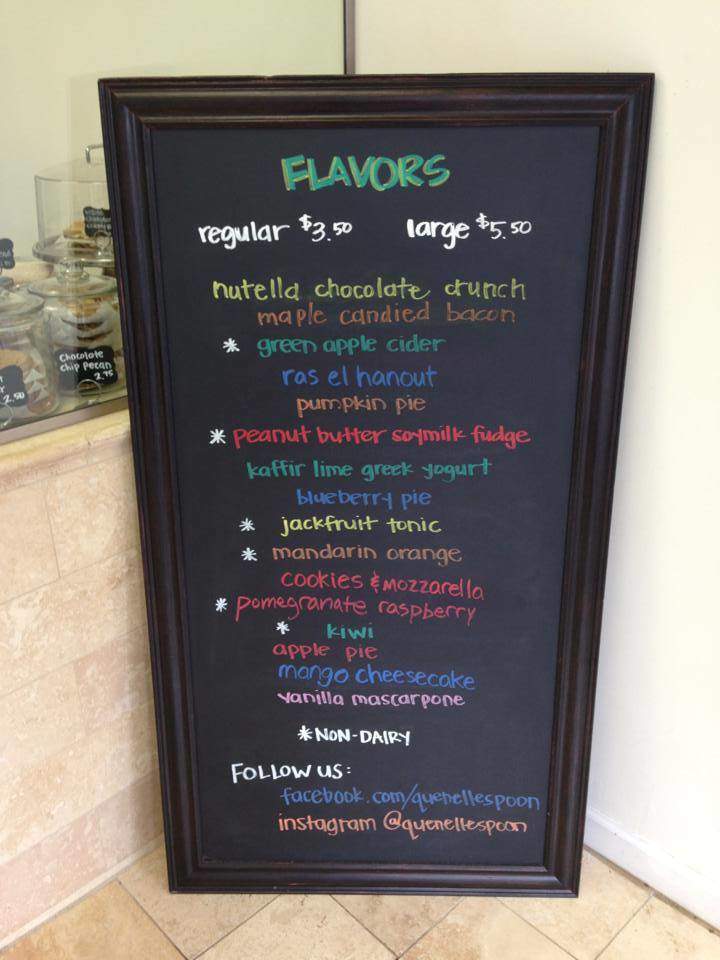 FLAVORS
regular $3.50 large $5.50
nutella chocolate crunch
maple candied bacon
* green apple cider
ras el hanout
pumpkin pie
* peanut butter soymilk fudge
kaffir lime greek yogurt
blueberry pie
* jackfruit tonic
* mandarin orange
cookies & mozzarella
* pomegranate raspberry
* kiwi
apple pie
mango cheesecake
vanilla mascarpone
* NON-DAIRY
FOLLOW US:
facebook.com/quenellespoon
instagram @quenellespoon
Chocolate
chip pecan
2.75
2.50